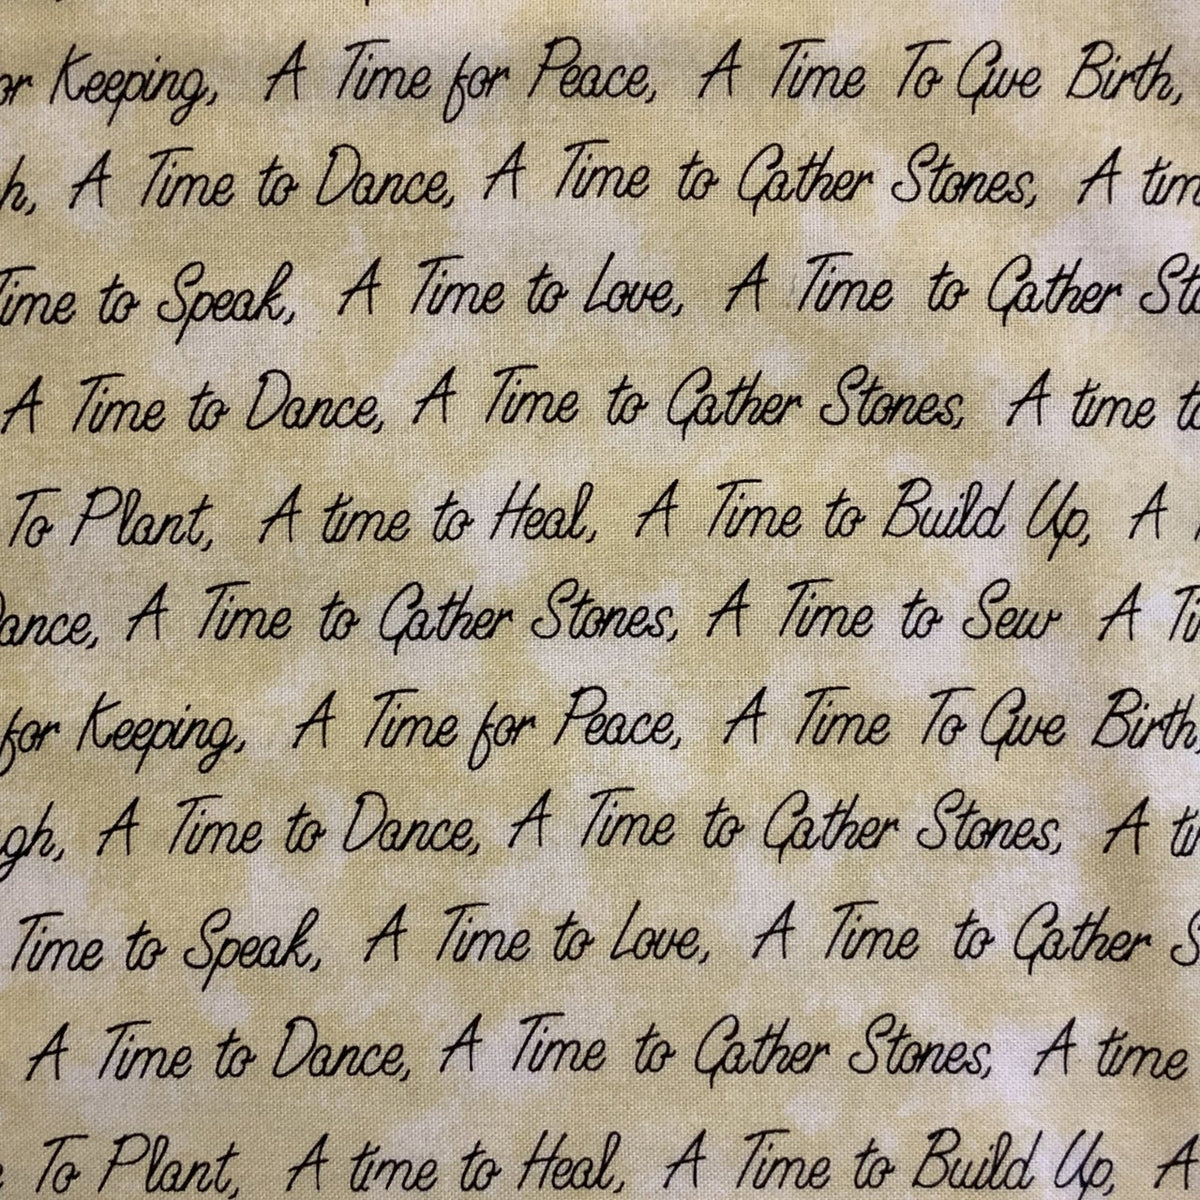 or Keeping, A Time for Peace, A Time To Give Birth,
h, A Time to Dance, A Time to Gather Stones, A tim
Time to Speak, A Time to Love, A Time to Gather Sto
A Time to Dance, A Time to Gather Stones, A time to
To Plant, A time to Heal, A Time to Build Up, A
Dance, A Time to Gather Stones, A Time to Sew A Ti
for Keeping, A Time for Peace, A Time To Give Birth,
gh, A Time to Dance, A Time to Gather Stones, A ti
Time to Speak, A Time to Love, A Time to Gather S
A Time to Dance, A Time to Gather Stones, A time
To Plant, A time to Heal, A Time to Build Up, A